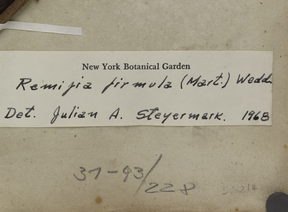 New York Botanical Garden
Remijia firmula (Mart.) Wedd.
Det. Julian A. Steyermark. 1968
37-93/228